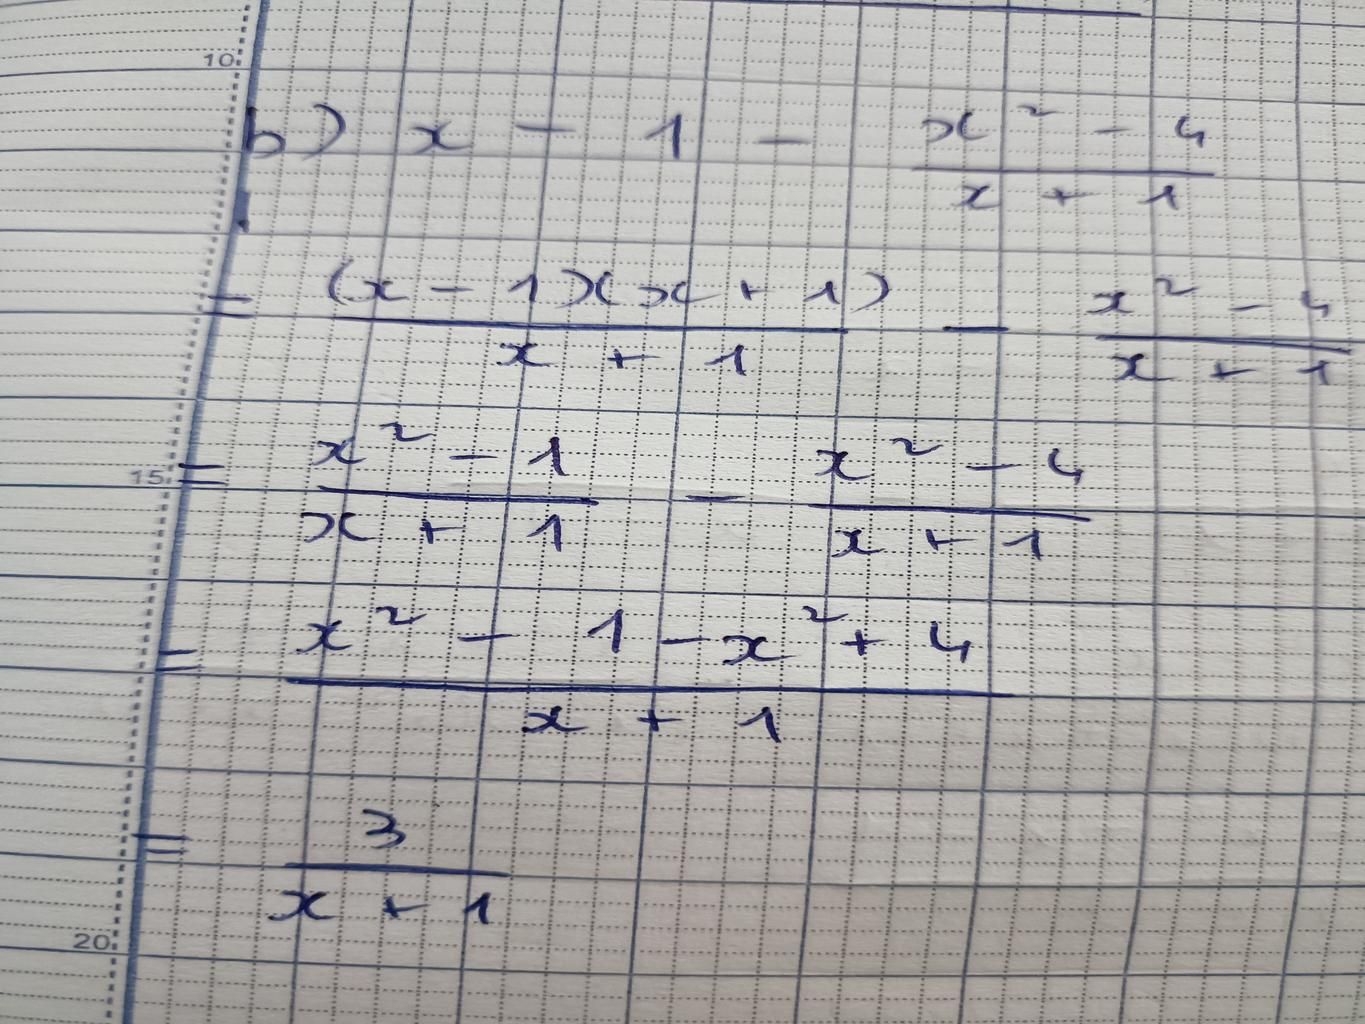 10
b) x - 1 - (x² - 4)/(x + 1)
= ((x - 1)(x + 1))/(x + 1) - (x² - 4)/(x + 1)
15 = (x² - 1)/(x + 1) - (x² - 4)/(x + 1)
= (x² - 1 - x² + 4)/(x + 1)
= 3/(x + 1)
20